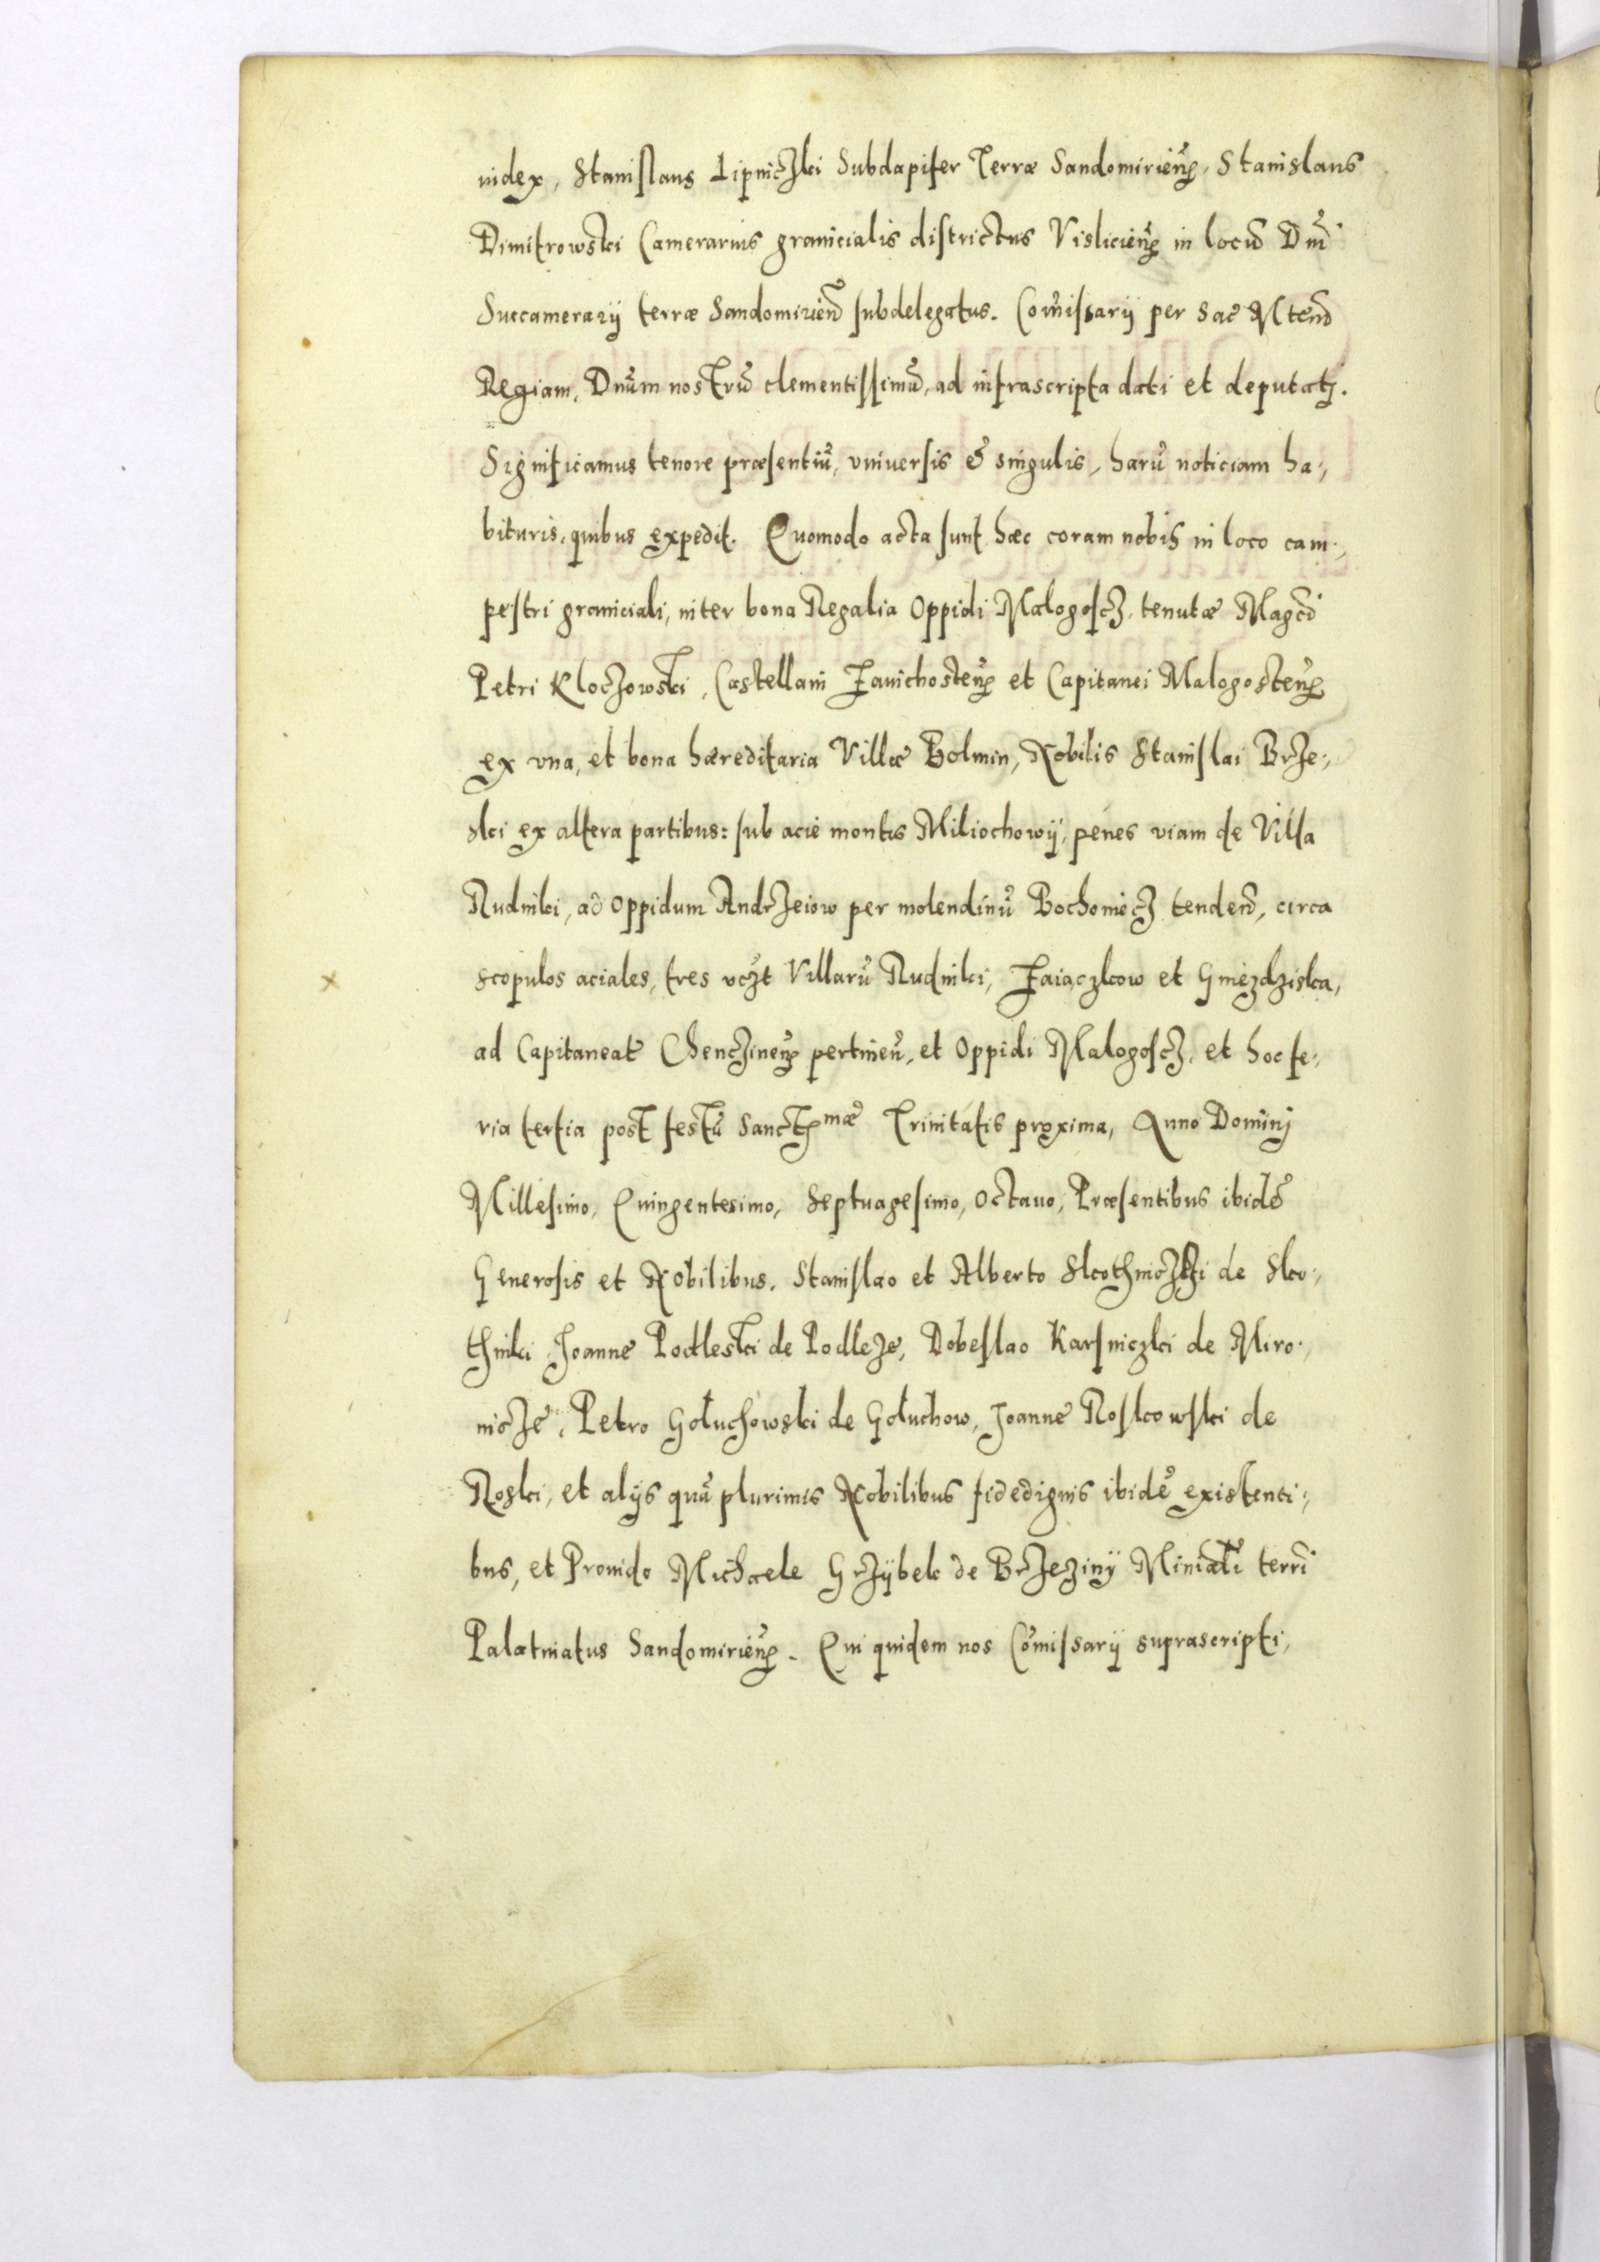 iudex, Stanislaus Lipniczki Subdapifer Terræ Sandomirieñ. Stanislaus
Dimitrowski Camerarius granicialis districtus Vislicieñ. in locũ Dñi
Succamerarij terræ Sandomirieñ subdelegatus. Com̃issarij per Sac Mtem̃
Regiam, Dnũm nostrũ clementissimũ, ad infrascripta dati et deputati.
Significamus tenore præsentiũ, vniuersis & singulis, harũ noticiam ha-,
bituris, quibus expedit. Quomodo acta sunt hæc coram nobis in loco cam-,
pestri graniciali, inter bona Regalia Oppidi Malogoscz, tenutæ Magcĩ
Petri Kloczowski, Castellani Zauichosteñ. et Capitanei Malogosteñ.
ex vna, et bona hæreditaria Villæ Bolmin, Nobilis Stanislai Brze-,
ski ex altera partibus: sub acie montis Miliochowij, penes viam de Villa
Rudniki, ad Oppidum Andrzeiow per molendinũ Bochoniecz tendeñ, circa
scopulos aciales, tres vczt Villarũ Rudniki, Zaiączkow et Gniezdziska,
ad Capitaneat Chenczineñ. pertineñ, et Oppidi Malogoscz, et hoc fe-,
ria tertia post festũ Sanctiss^mæ Trinitatis proxima, Anno Dominj
Millesimo, Quingentesimo, Septuagesimo, Octauo, Præsentibus ibidẽ
Generosis et Nobilibus. Stanislao et Alberto Skothniczki de Sko-,
thniki Joanne Podleski de Podleze, Dobeslao Karsniczki de Miro-,
nicze, Petro Gołuchowski de Gołuchow, Joanne Roskowski de
Roski, et alijs quã plurimis Nobilibus fidedignis ibidẽ existenti-,
bus, et Prouido Michaele Grzÿbek de Brzezinÿ Ministeriali terrĩ
Palatinatus Sandomirieñ. Qui quidem nos Com̃issarij suprascripti,